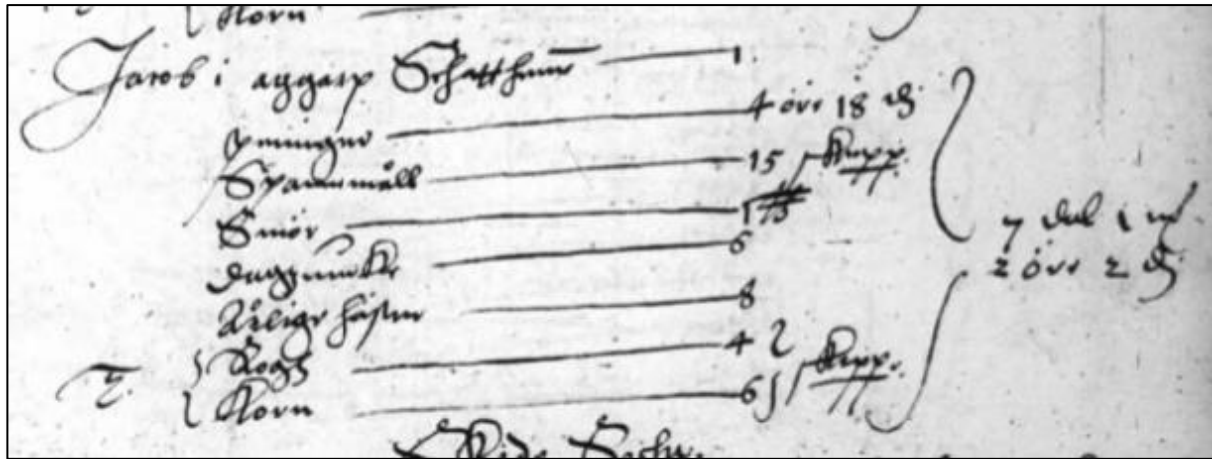 Korn
Jacob i aggarp Schatthemē 1
peninger 4 öre 18 ₰
Spannmåll 15 Kapp.
Smör 1 ℔
dagzuerke 6
Årlige häster 8
T. Rogh 4
Korn 6 Kapp.
7 dal 1 mk
2 öre 2 ₰